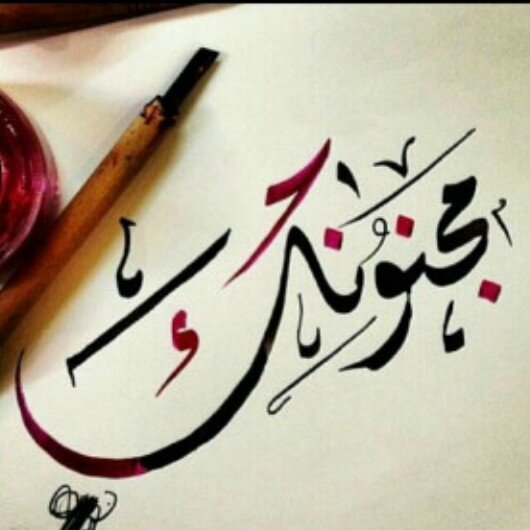 مجنونك